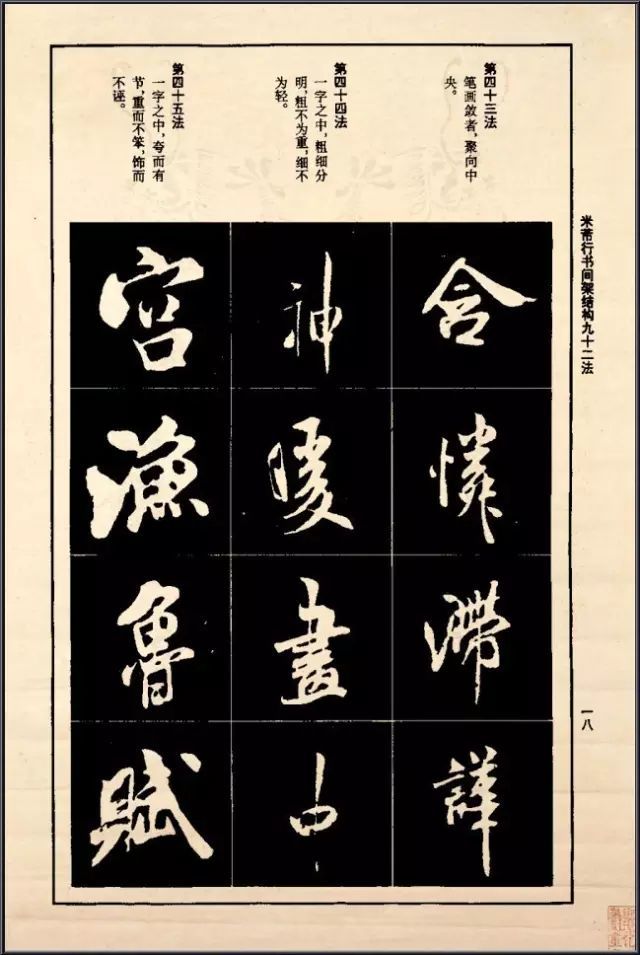 米芾行书间架结构九十二法
一八
第四十三法
笔画敛者，聚向中
央。
第四十四法
一字之中，粗细分
明，粗不为重，细不
为轻。
第四十五法
一字之中，夸而有
节，重而不笨，饰而
不诬。
含憐滯譁
神暖畫中
宫漁魯賦